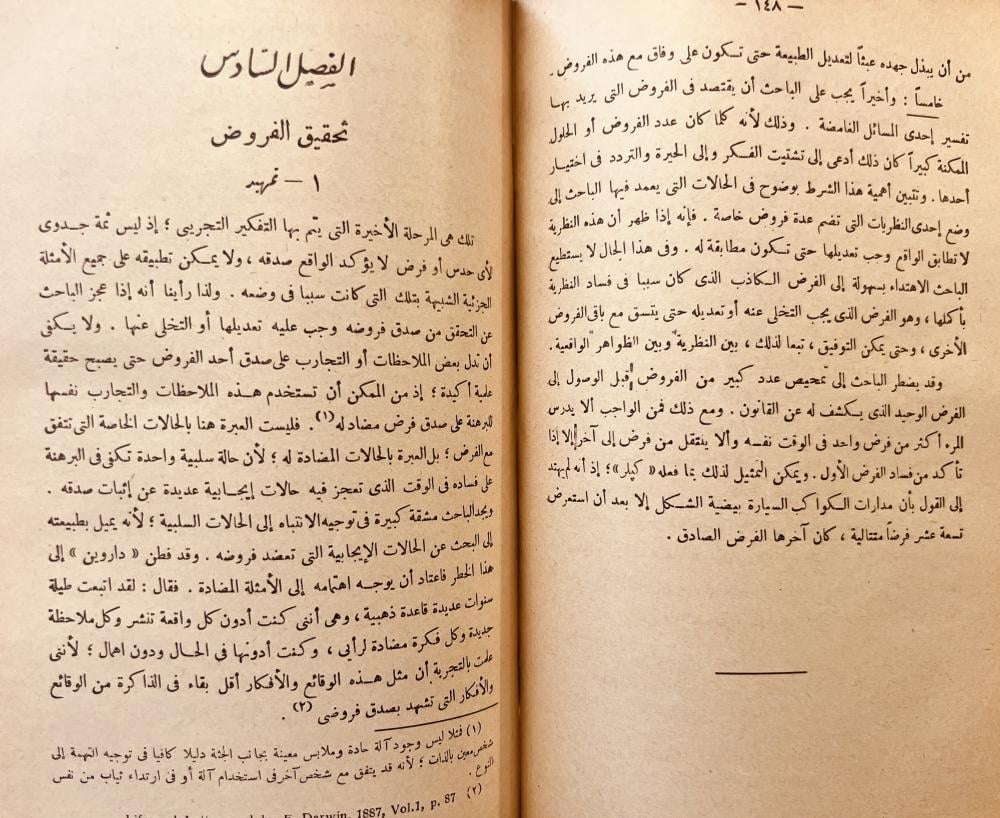 — ١٤٨ —
من أن يبذل جهده عبثاً لتعديل الطبيعة حتى تكون على وفاق مع هذه الفروض.
خامساً : وأخيراً يجب على الباحث أن يقتصد فى الفروض التى يريد بها
تفسير إحدى المسائل الغامضة . وذلك لأنه كلما كان عدد الفروض أو الحلول
الممكنة كبيراً كان ذلك أدعى إلى تشتيت الفكر وإلى الحيرة والتردد فى اختيار
أحدها . وتتبين أهمية هذا الشرط بوضوح فى الحالات التى يعمد فيها الباحث إلى
وضع إحدى النظريات التى تضم عدة فروض خاصة . فإنه إذا ظهر أن هذه النظرية
لا تطابق الواقع وجب تعديلها حتى تكون مطابقة له . وفى هذا الحال لا يستطيع
الباحث الاهتداء بسهولة إلى الفرض الكاذب الذى كان سببا فى فساد النظرية
بأكملها ، وهو الفرض الذى يجب التخلى عنه أو تعديله حتى يتسق مع باقى الفروض
الأخرى ، وحتى يمكن التوفيق ، تبعا لذلك ، بين النظرية وبين الظواهر الواقعية .
وقد يضطر الباحث إلى تمحيص عدد كبير من الفروض قبل الوصول إلى
الفرض الوحيد الذى يكشف له عن القانون . ومع ذلك فمن الواجب ألا يدرس
المرء أكثر من فرض واحد فى الوقت نفسه وألا ينتقل من فرض إلى آخر إلا إذا
تأكد من فساد الفرض الأول . ويمكن التمثيل لذلك بما فعله « كبلر » ؛ إذ أنه لم يهتد
إلى القول بأن مدارات الكواكب السيارة بيضية الشكل إلا بعد أن استعرض
تسعة عشر فرضاً متتالية ، كان آخرها الفرض الصادق .
الفصل السادس
تحقيق الفروض
١ — تمهيد
تلك هى المرحلة الأخيرة التى يتم بها التفكير التجريبى ؛ إذ ليس ثمة جدوى
لأى حدس أو فرض لا يؤكد الواقع صدقه ، ولا يمكن تطبيقه على جميع الأمثلة
الجزئية الشبيهة بتلك التى كانت سببا فى وضعه . ولذا رأينا أنه إذا عجز الباحث
عن التحقق من صدق فروضه وجب عليه تعديلها أو التخلى عنها . ولا يكفى
أن تدل بعض الملاحظات أو التجارب على صدق أحد الفروض حتى يصبح حقيقة
علمية أكيدة ؛ إذ من الممكن أن تستخدم هذه الملاحظات والتجارب نفسها
للبرهنة على صدق فرض مضاد له (١) . فليست العبرة هنا بالحالات الخاصة التى تتفق
مع الفرض ؛ بل العبرة بالحالات المضادة له ؛ لأن حالة سلبية واحدة تكفى فى البرهنة
على فساده فى الوقت الذى تعجز فيه حالات إيجابية عديدة عن إثبات صدقه .
ويجد الباحث مشقة كبيرة فى توجيه الانتباه إلى الحالات السلبية ؛ لأنه يميل بطبيعته
إلى البحث عن الحالات الإيجابية التى تعضد فروضه . وقد فطن « داروين » إلى
هذا الخطر فاعتاد أن يوجه اهتمامه إلى الأمثلة المضادة . فقال : لقد اتبعت طيلة
سنوات عديدة قاعدة ذهبية ، وهى أننى كنت أدون كل واقعة تنشر وكل ملاحظة
جديدة وكل فكرة مضادة لرأيى ، وكنت أدونها فى الحال ودون اهمال ؛ لأننى
علمت بالتجربة أن مثل هذه الوقائع والأفكار أقل بقاء فى الذاكرة من الوقائع
والأفكار التى تشهد بصدق فروضى (٢) .
(١) فمثلا ليس وجود آلة حادة وملابس معينة بجانب الجثة دليلا كافيا فى توجيه التهمة إلى
شخص معين بالذات ؛ لأنه قد يتفق مع شخص آخر فى استخدام آلة أو فى ارتداء ثياب من نفس
النوع .
(٢) Darwin, 1887, Vol.1, p. 87